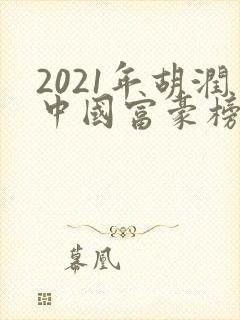 2021年胡潤
中國富豪榜
幕凰